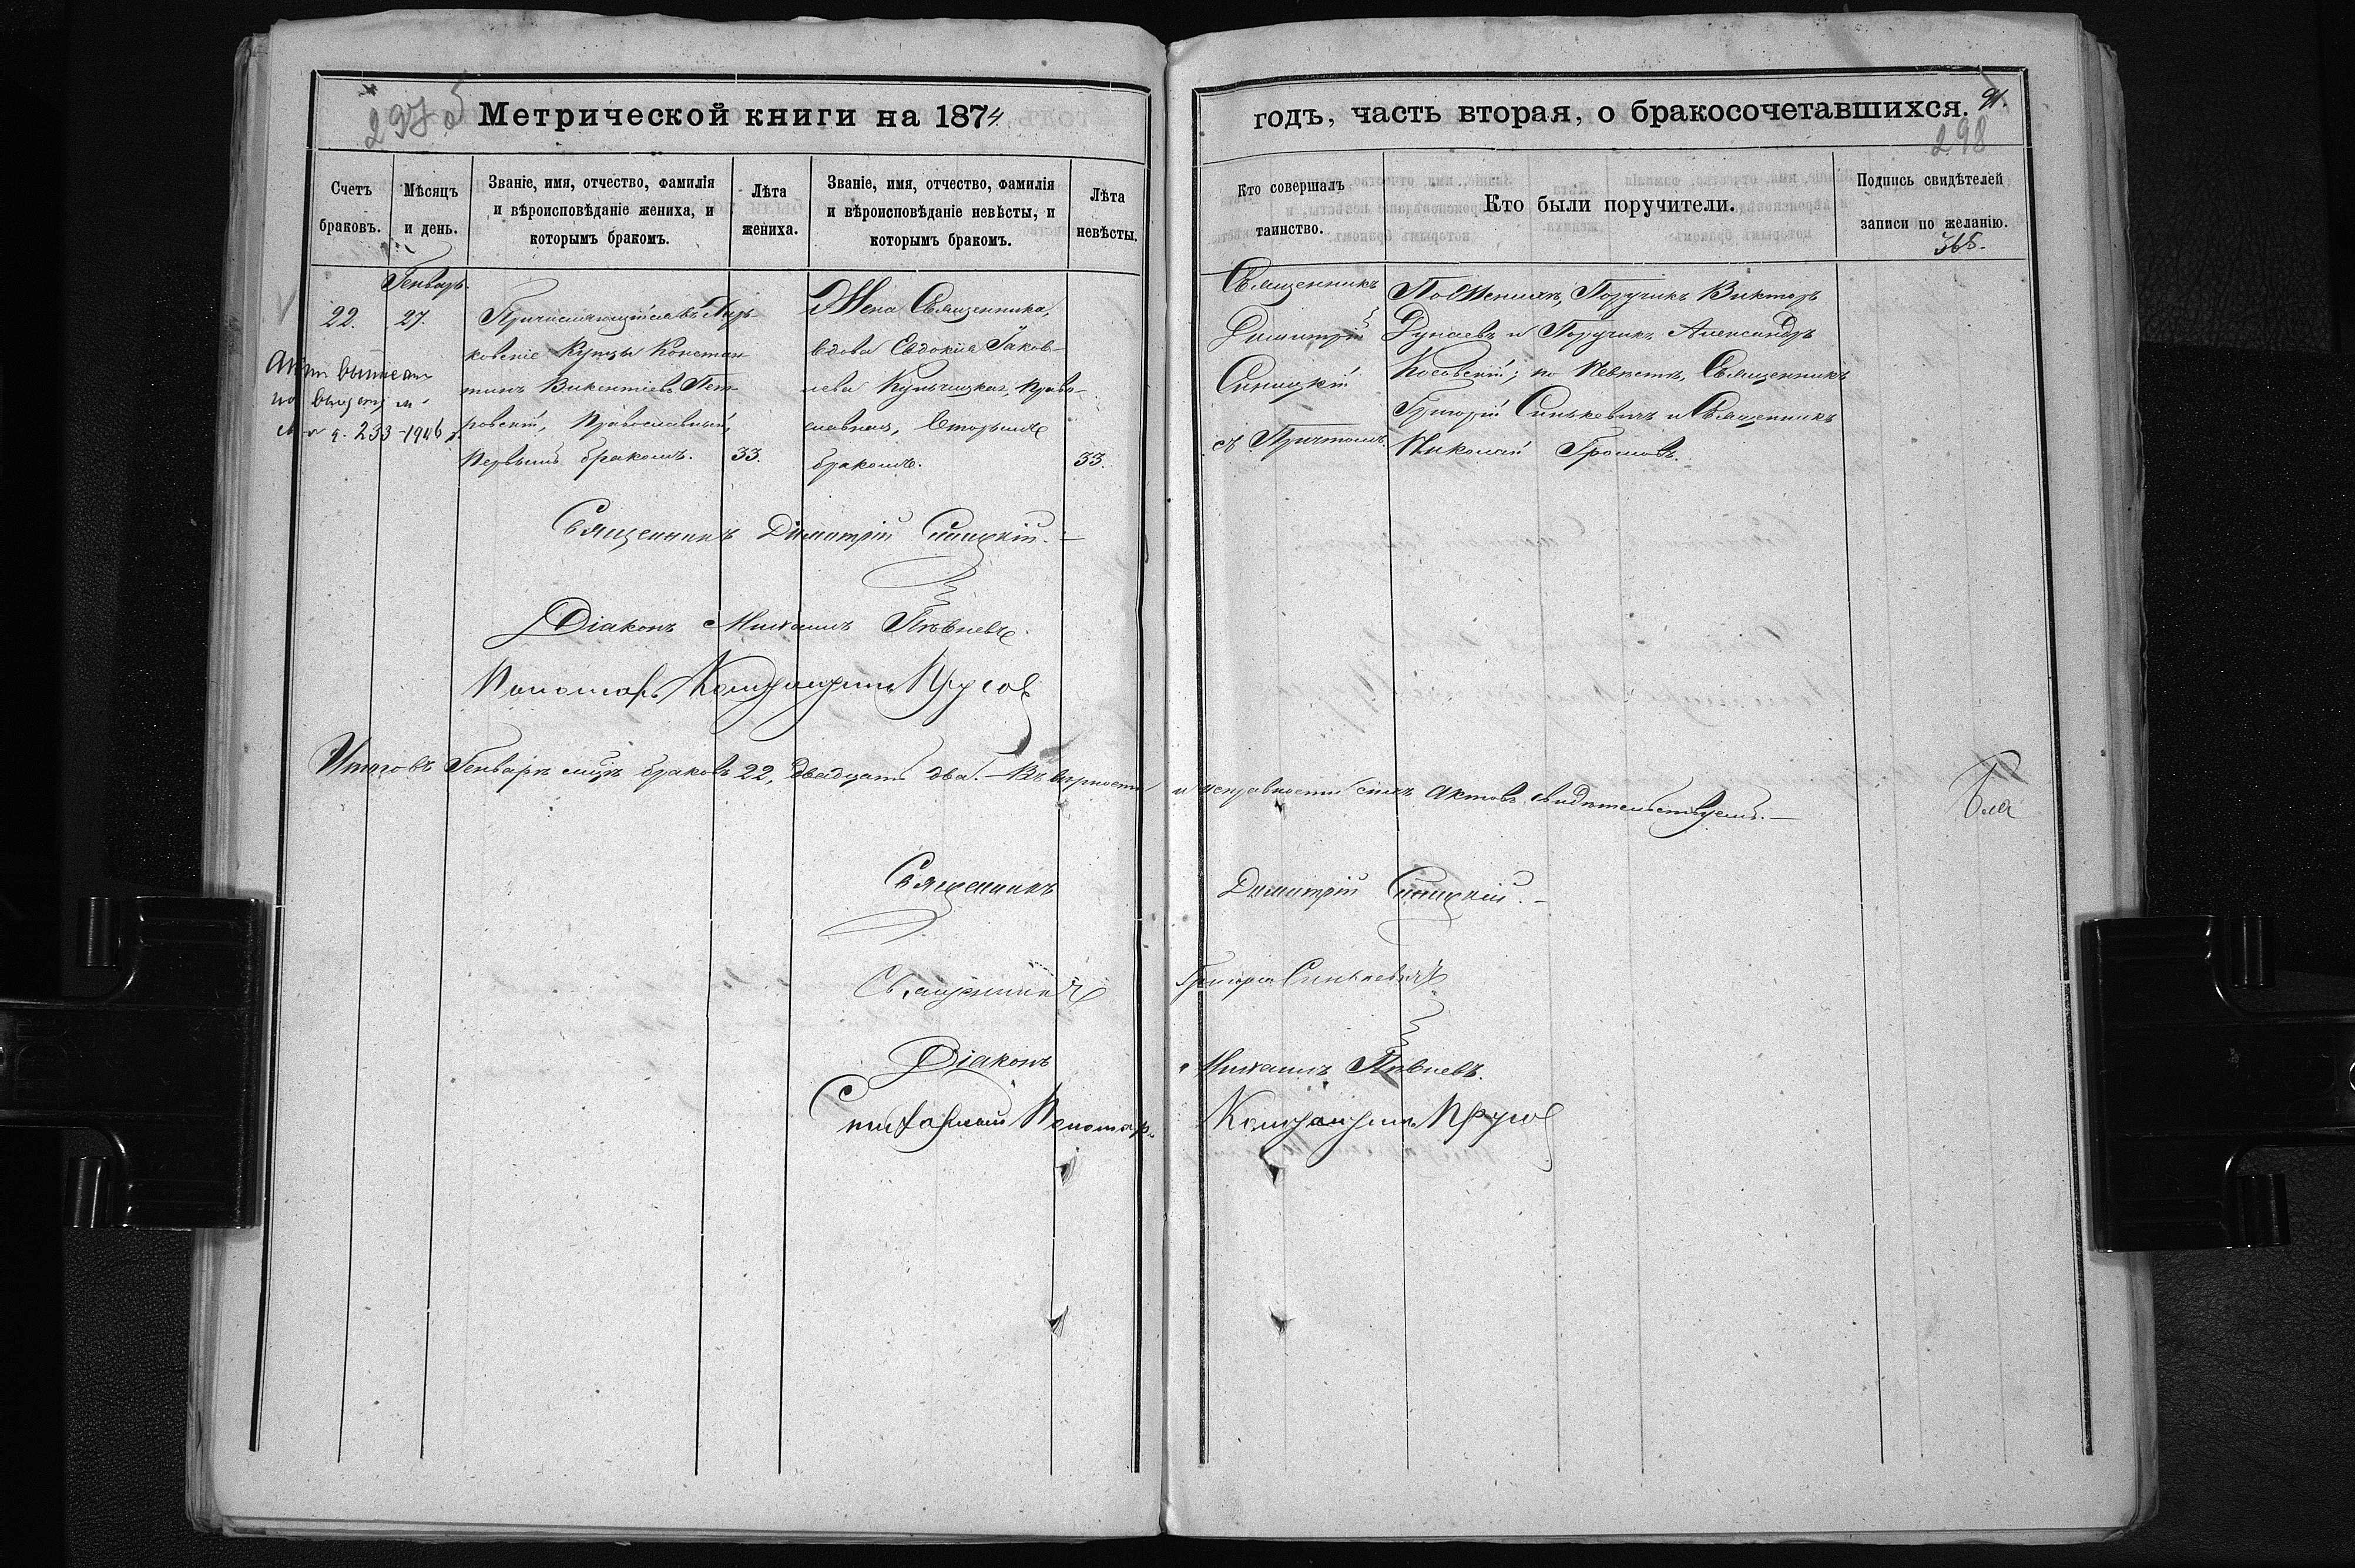 Метрической книги на 1874
годъ, часть вторая, о бракосочетавшихся.
91.
298
Счетъ браковъ.
Мѣсяцъ и день.
Званіе, имя, отчество, фамилія
и вѣроисповѣданіе жениха, и
которымъ бракомъ.
Лѣта жениха.
Званіе, имя, отчество, фамилія
и вѣроисповѣданіе невѣсты, и
которымъ бракомъ.
Лѣта невѣсты.
Кто совершалъ
таинство.
Кто были поручители.
Подпись свидѣтелей
записи по желанію.
Генварь
22.
27.
Причисляющійся въ Харь-
ковскіе Купцы Констан
тинъ Викентіевъ Пет-
ровскій, Православный,
Первымъ бракомъ.
33.
Жена Священника,
вдова Евдокія Іаков-
лева Кульчицкая, право-
славная, вторымъ
бракомъ.
33.
Священникъ
Димитрій
Синицкій
съ Причтомъ.
По Женихѣ, Поручикъ Викторъ
Дунаевъ и Поручикъ Александръ
Косовскій; по Невѣстѣ, Священникъ
Григорій Синькевичъ и Священникъ
Николай Громовъ.
г. 233-1946
Священникъ Димитрій Синицкій.
Діаконъ Михаилъ Пѣвневъ.
Пономарь Константинъ Прусов
Итого въ Генварѣ мцѣ браковъ 22, двадцать два. – Въ вѣрности
и исправности сихъ актовъ свидѣтельствуемъ. –
Священникъ Димитрій Синицкій. –
Священникъ Григорій Синькевичъ
Діаконъ Михаилъ Пѣвневъ.
Стихарный Пономарь Константинъ Прусов